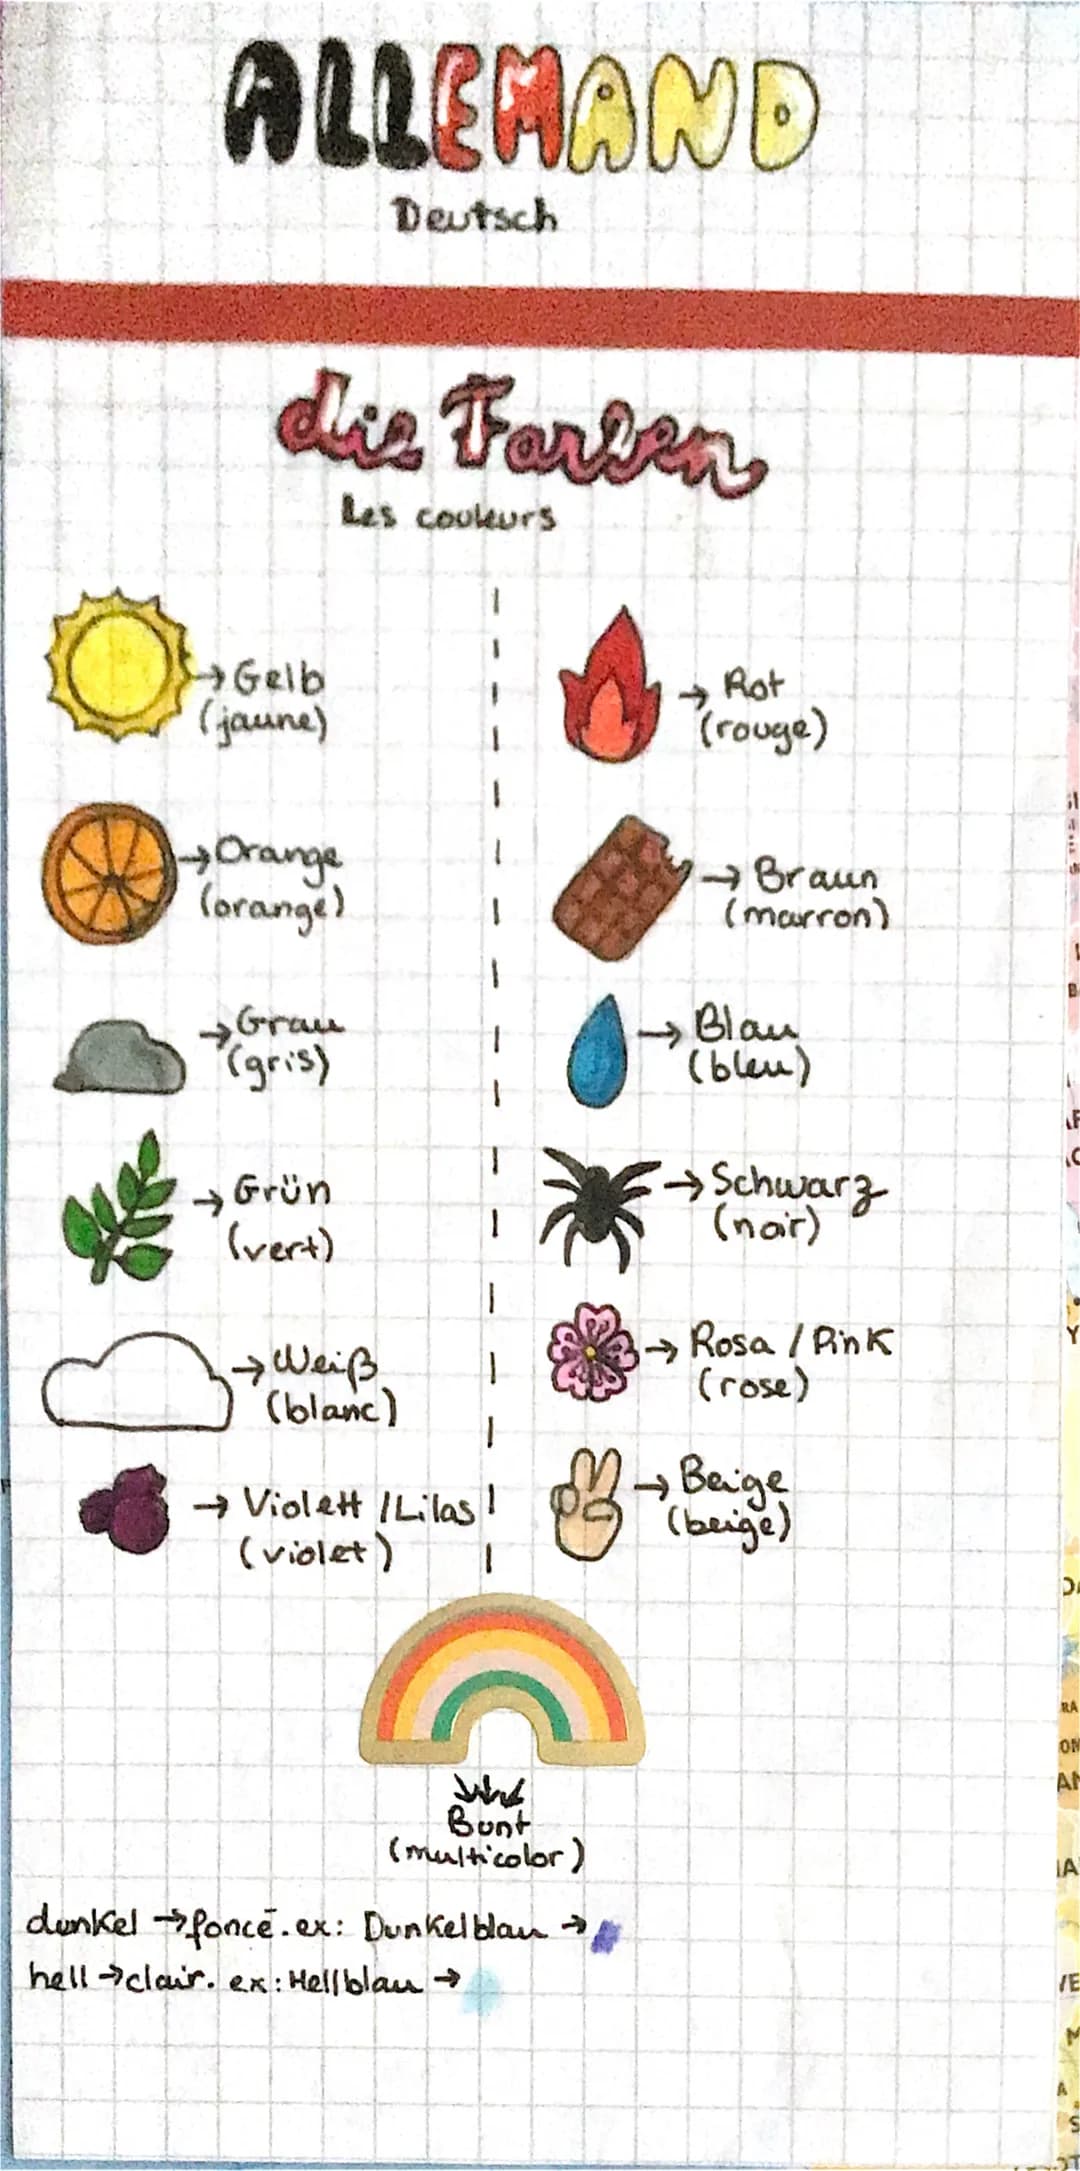 ALLEMAND
Deutsch
die Farben
Les couleurs
→ Gelb
(jaune)
→ Rot
(rouge)
→ Orange
(orange)
→ Braun
(marron)
→ Grau
(gris)
→ Blau
(bleu)
→ Grün
(vert)
→ Schwarz
(noir)
→ Weiß
(blanc)
→ Rosa / Pink
(rose)
→ Violett / Lilas
(violet)
→ Beige
(beige)
Bunt
(multicolor)
dunkel → foncé. ex: Dunkelblau →
hell → clair. ex: Hellblau →